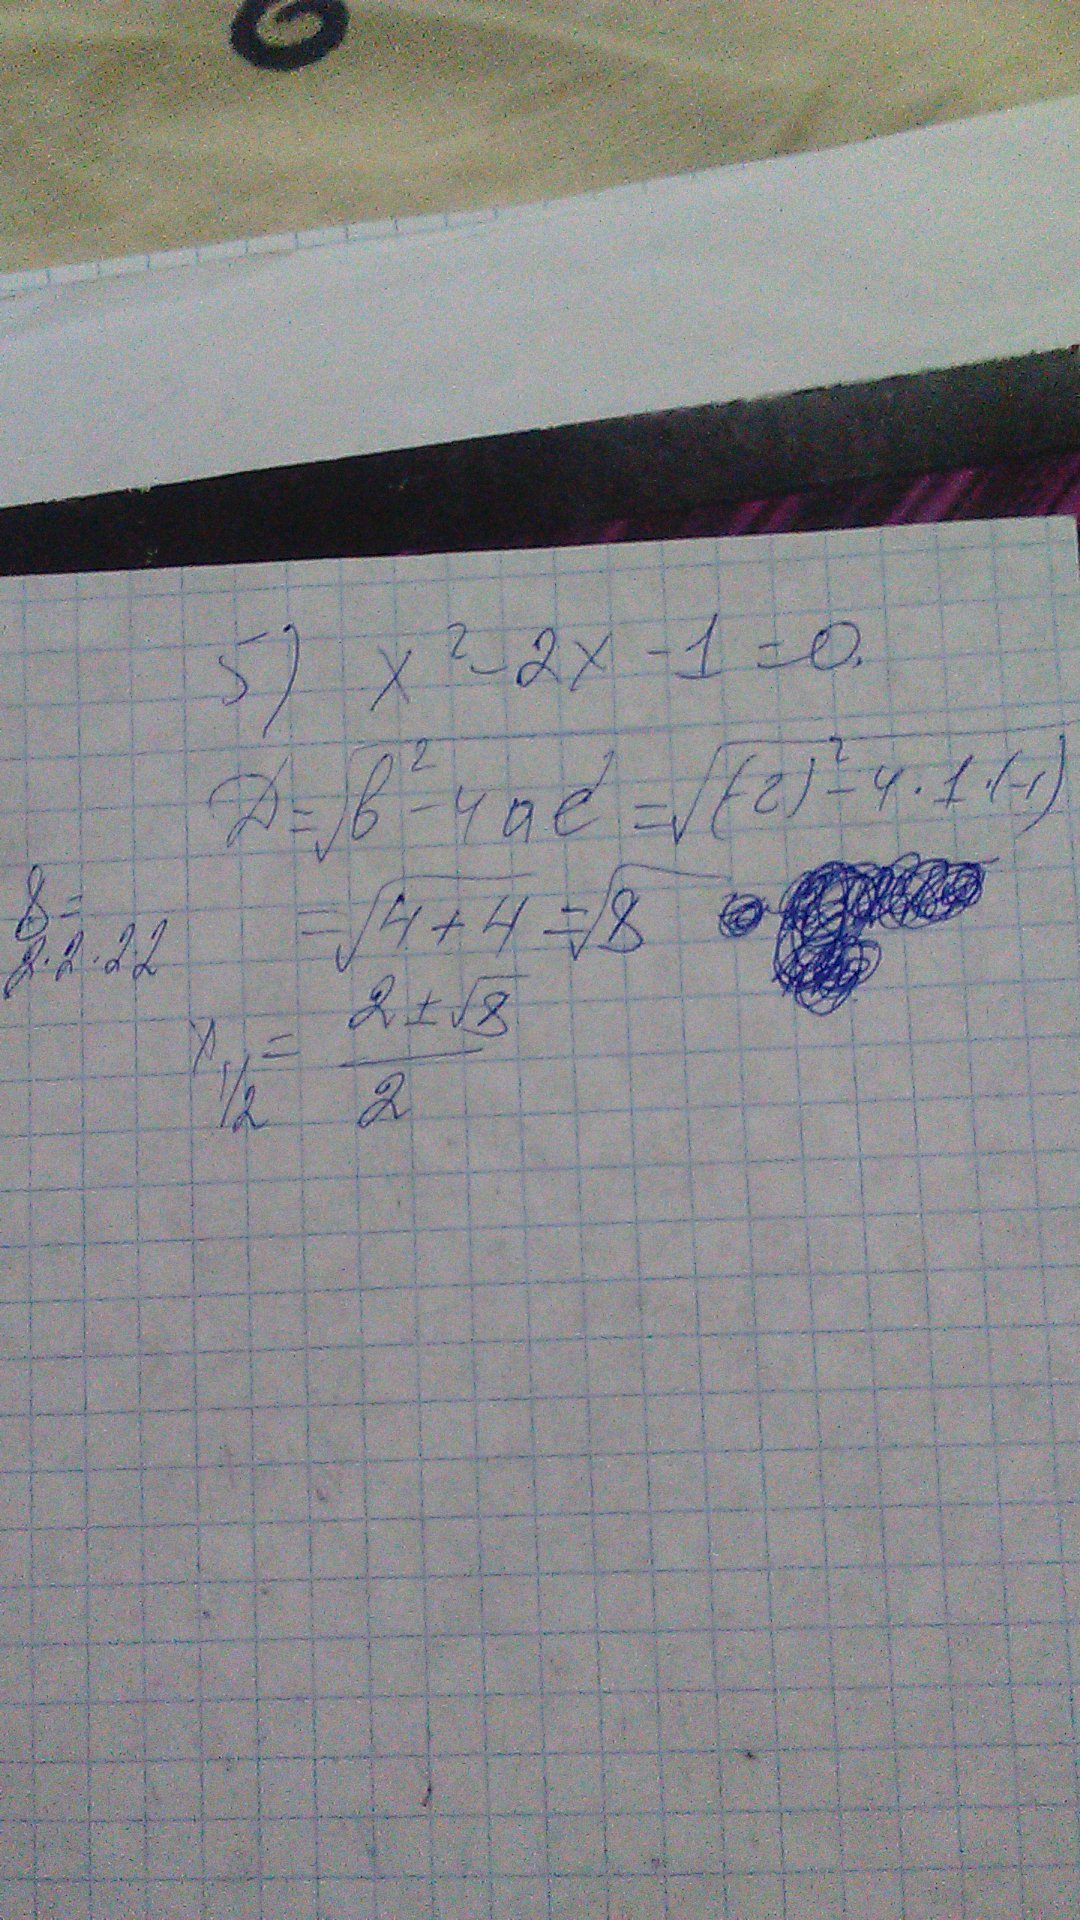 5) x² - 2x - 1 = 0.
D = √b² - 4ac = √(-2)² - 4 · 1 · (-1)
= √4 + 4 = √8
8 =
2 · 2 · 22
x 1/2 = 2 ± √8 / 2